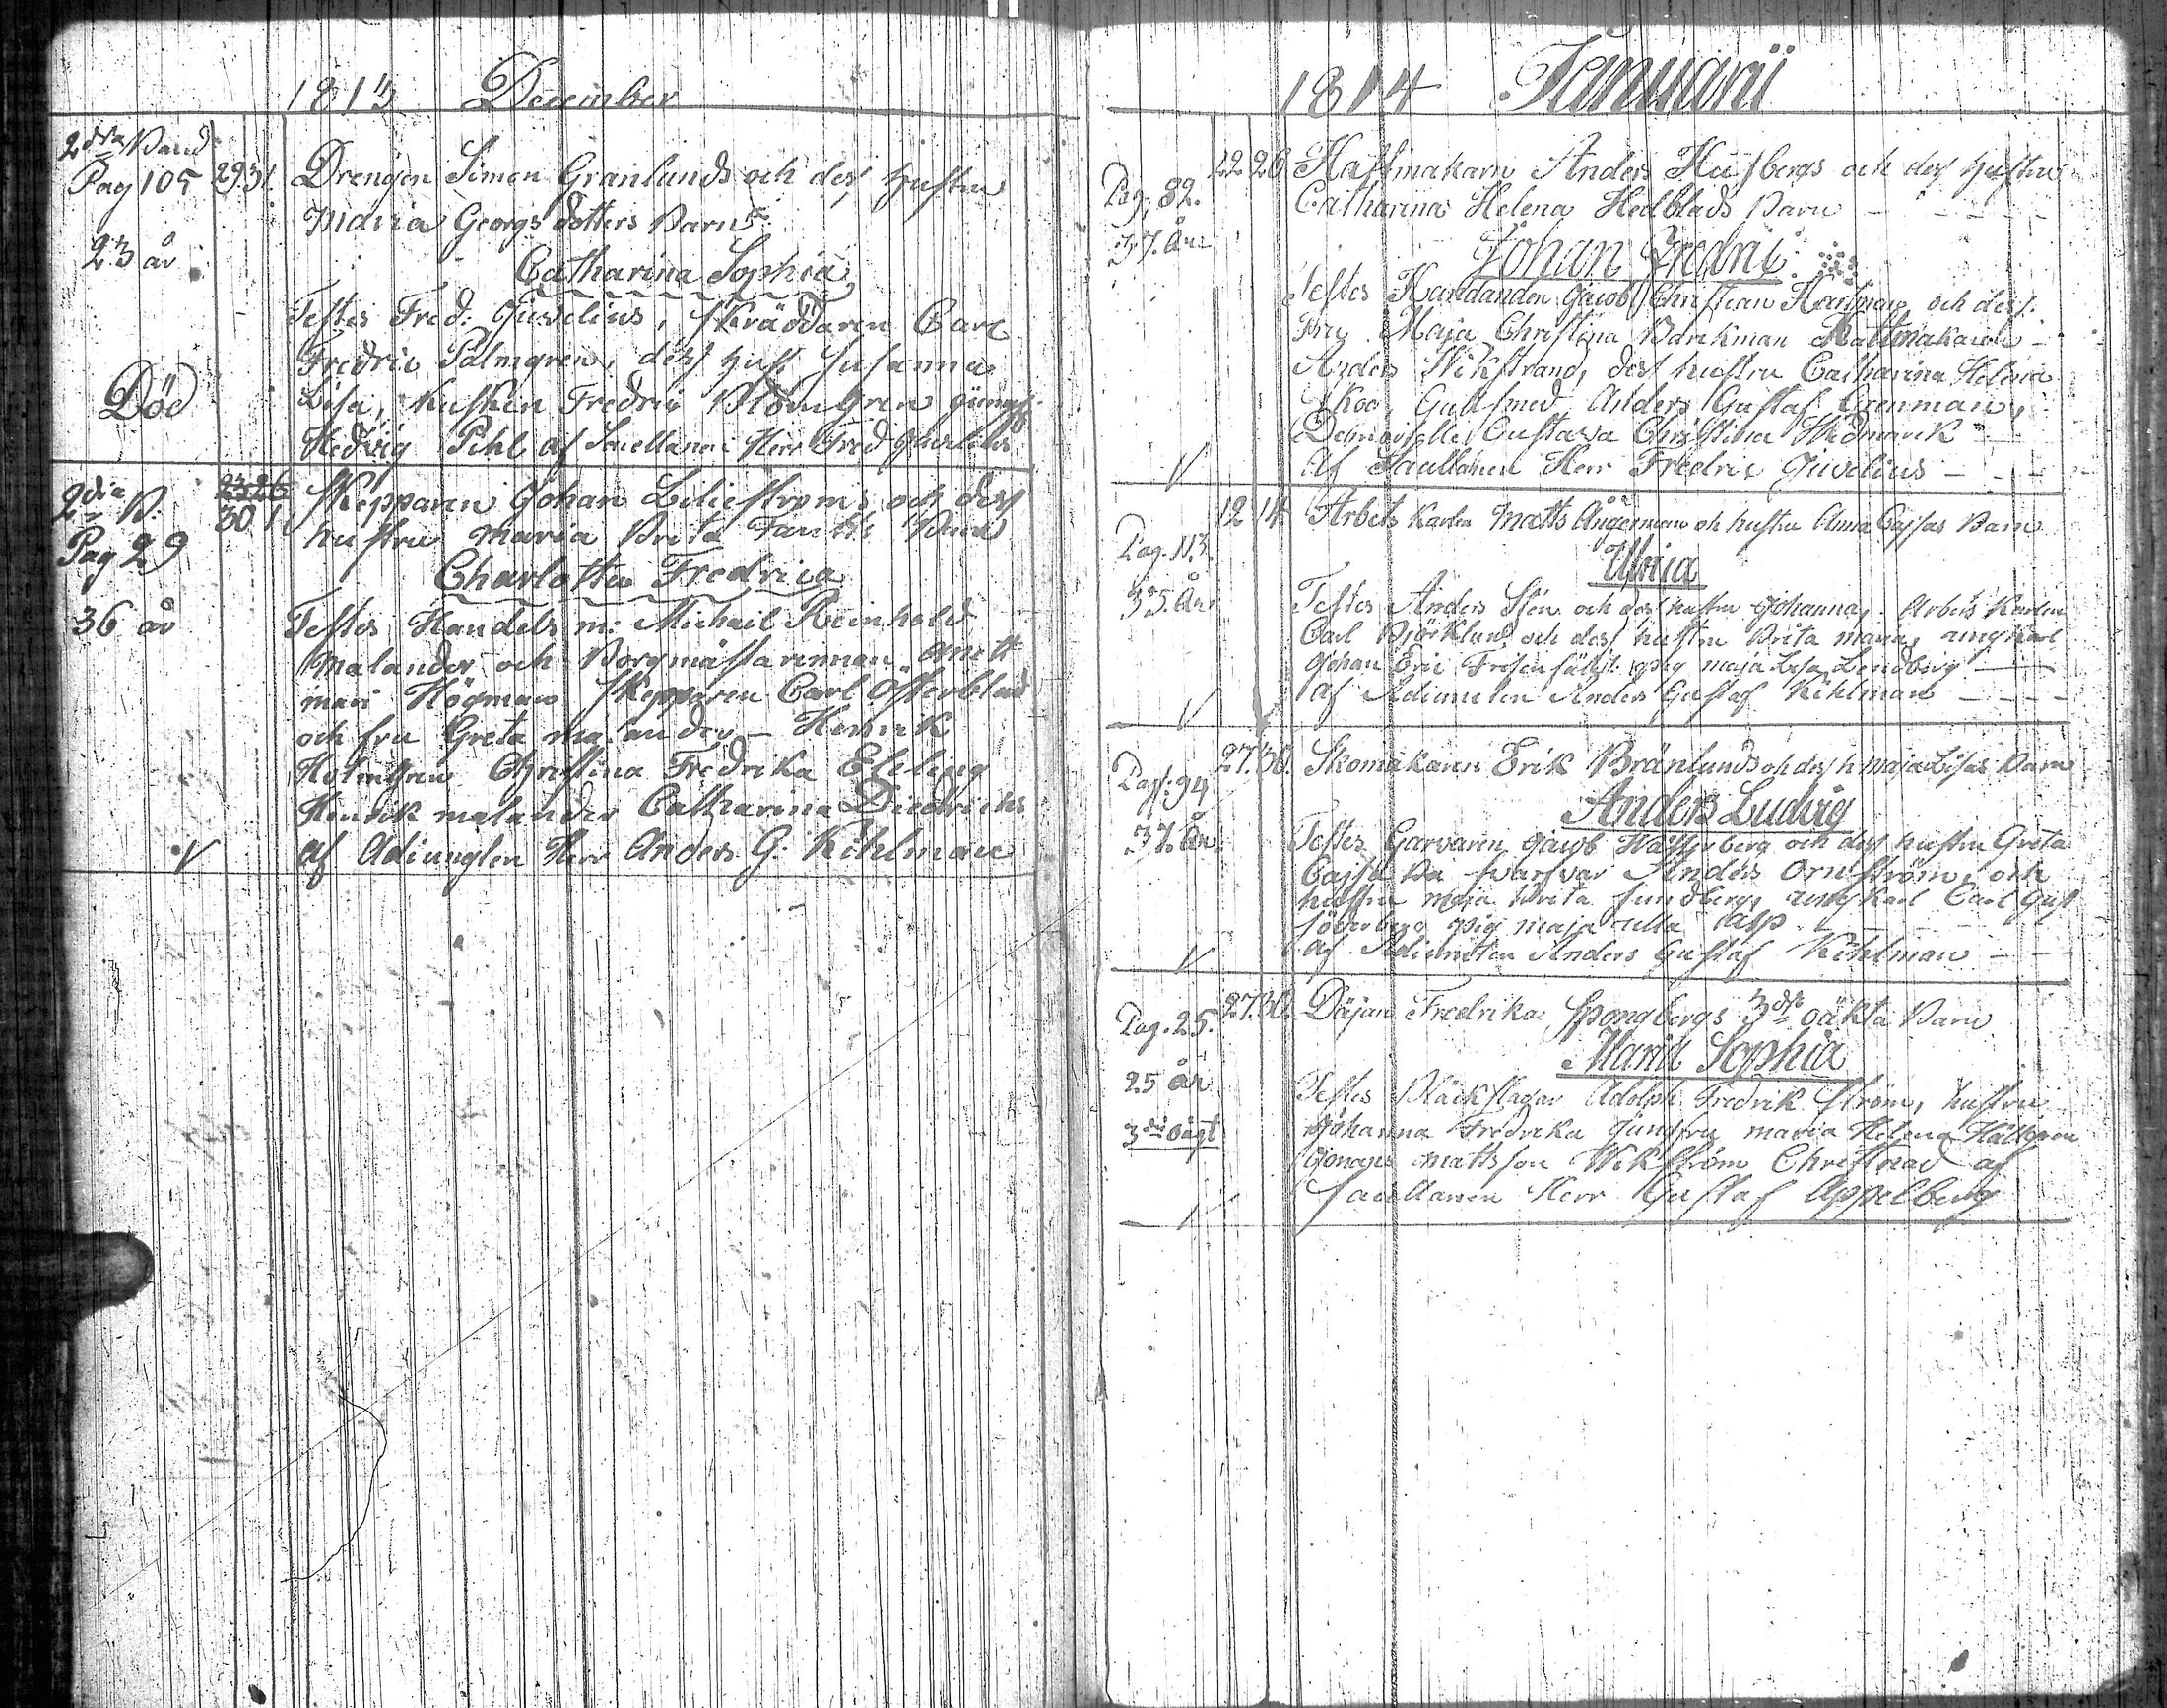 1813 December
2dra Band
Pag 105 29 31. Drengen Simon Granlunds och dess hustru
Maria Georgsdotters Barn
23 år
Catharina Sophia
Testes Fred: Juvelius, Skräddaren Carl
Fredric Palmgren, dess hust Susanna
Död
Lisa, Kusken Fredric Blomgren
Hedvig Pihl af Herr Fred Juvelius
2dra B. 23 26 Skepparen Johan Liliestroms och dess
30 1 hustru Maria Brita Barn
Pag 29
Charlotta Fredrica
36 år
Testes Handels m: Michail Reinhold
Malander och Borgmästarinnan Anett
mari Högman Skepparen Carl Osterblad
och fru Greta Malander – Henrik
Holmgren Christina Fredrika Ebeling
Henrik malander Catharina Diedrichs
af Adiungten Herr Anders G: Kihlman
1814 Januarii
22 26 Hattmakarn Anders Husbergs och dess hustru
Pag. 82. Catharina Helena Hedblads Barn
37. År
Johan Fredric
Testes Handlanden Jacob Christian och dess
Fru Maja Christina Barkman Hattmakaren
Anders Wikstrand, dess hustru Catharina Helena
Skoog Gullsmed Anders Gustaf Grenman,
Demoiselle Gustava Christina Widmarck
af Herr Fredric Juvelius
12 14. Arbets Karlen Matts Ångerman och hustru Anna Cajsas Barn
Pag. 113
Ulrica
35. År
Testes Anders Sten och dess hustru Johanna, Arbets Karlen
Carl Björklund och dess hustru Brita maria, ungkarl
Johan Eric pig maja Lisa Lindberg
af Adiuncten Anders Gustaf Kihlman
27. 30. Skomakaren Erik Bränlunds och dess h maja Lisas Barn
Pag. 94
Anders Ludvig
37. År
Testes Garvaren Jacob och dess hustru Greta
Cajsa Svarfvar Anders Ornström, och
hustru maja Brita Sundberg, ungkarl Carl Gust
Söderberg pig maja Ulla Asp
af Adiuncten Anders Gustaf Kihlman
27. 30. Däjan Fredrika Spongbergs 3dje oäkta Barn
Pag. 25.
Maria Sophia
25 år
Testes Bläckslagar Adolph Fredrik Ström, hustru
3die oägt Johanna Fredrika Jungfru maria Helena Hällgren
mattsson Wikström Christina af
Herr Gustaf Appelberg